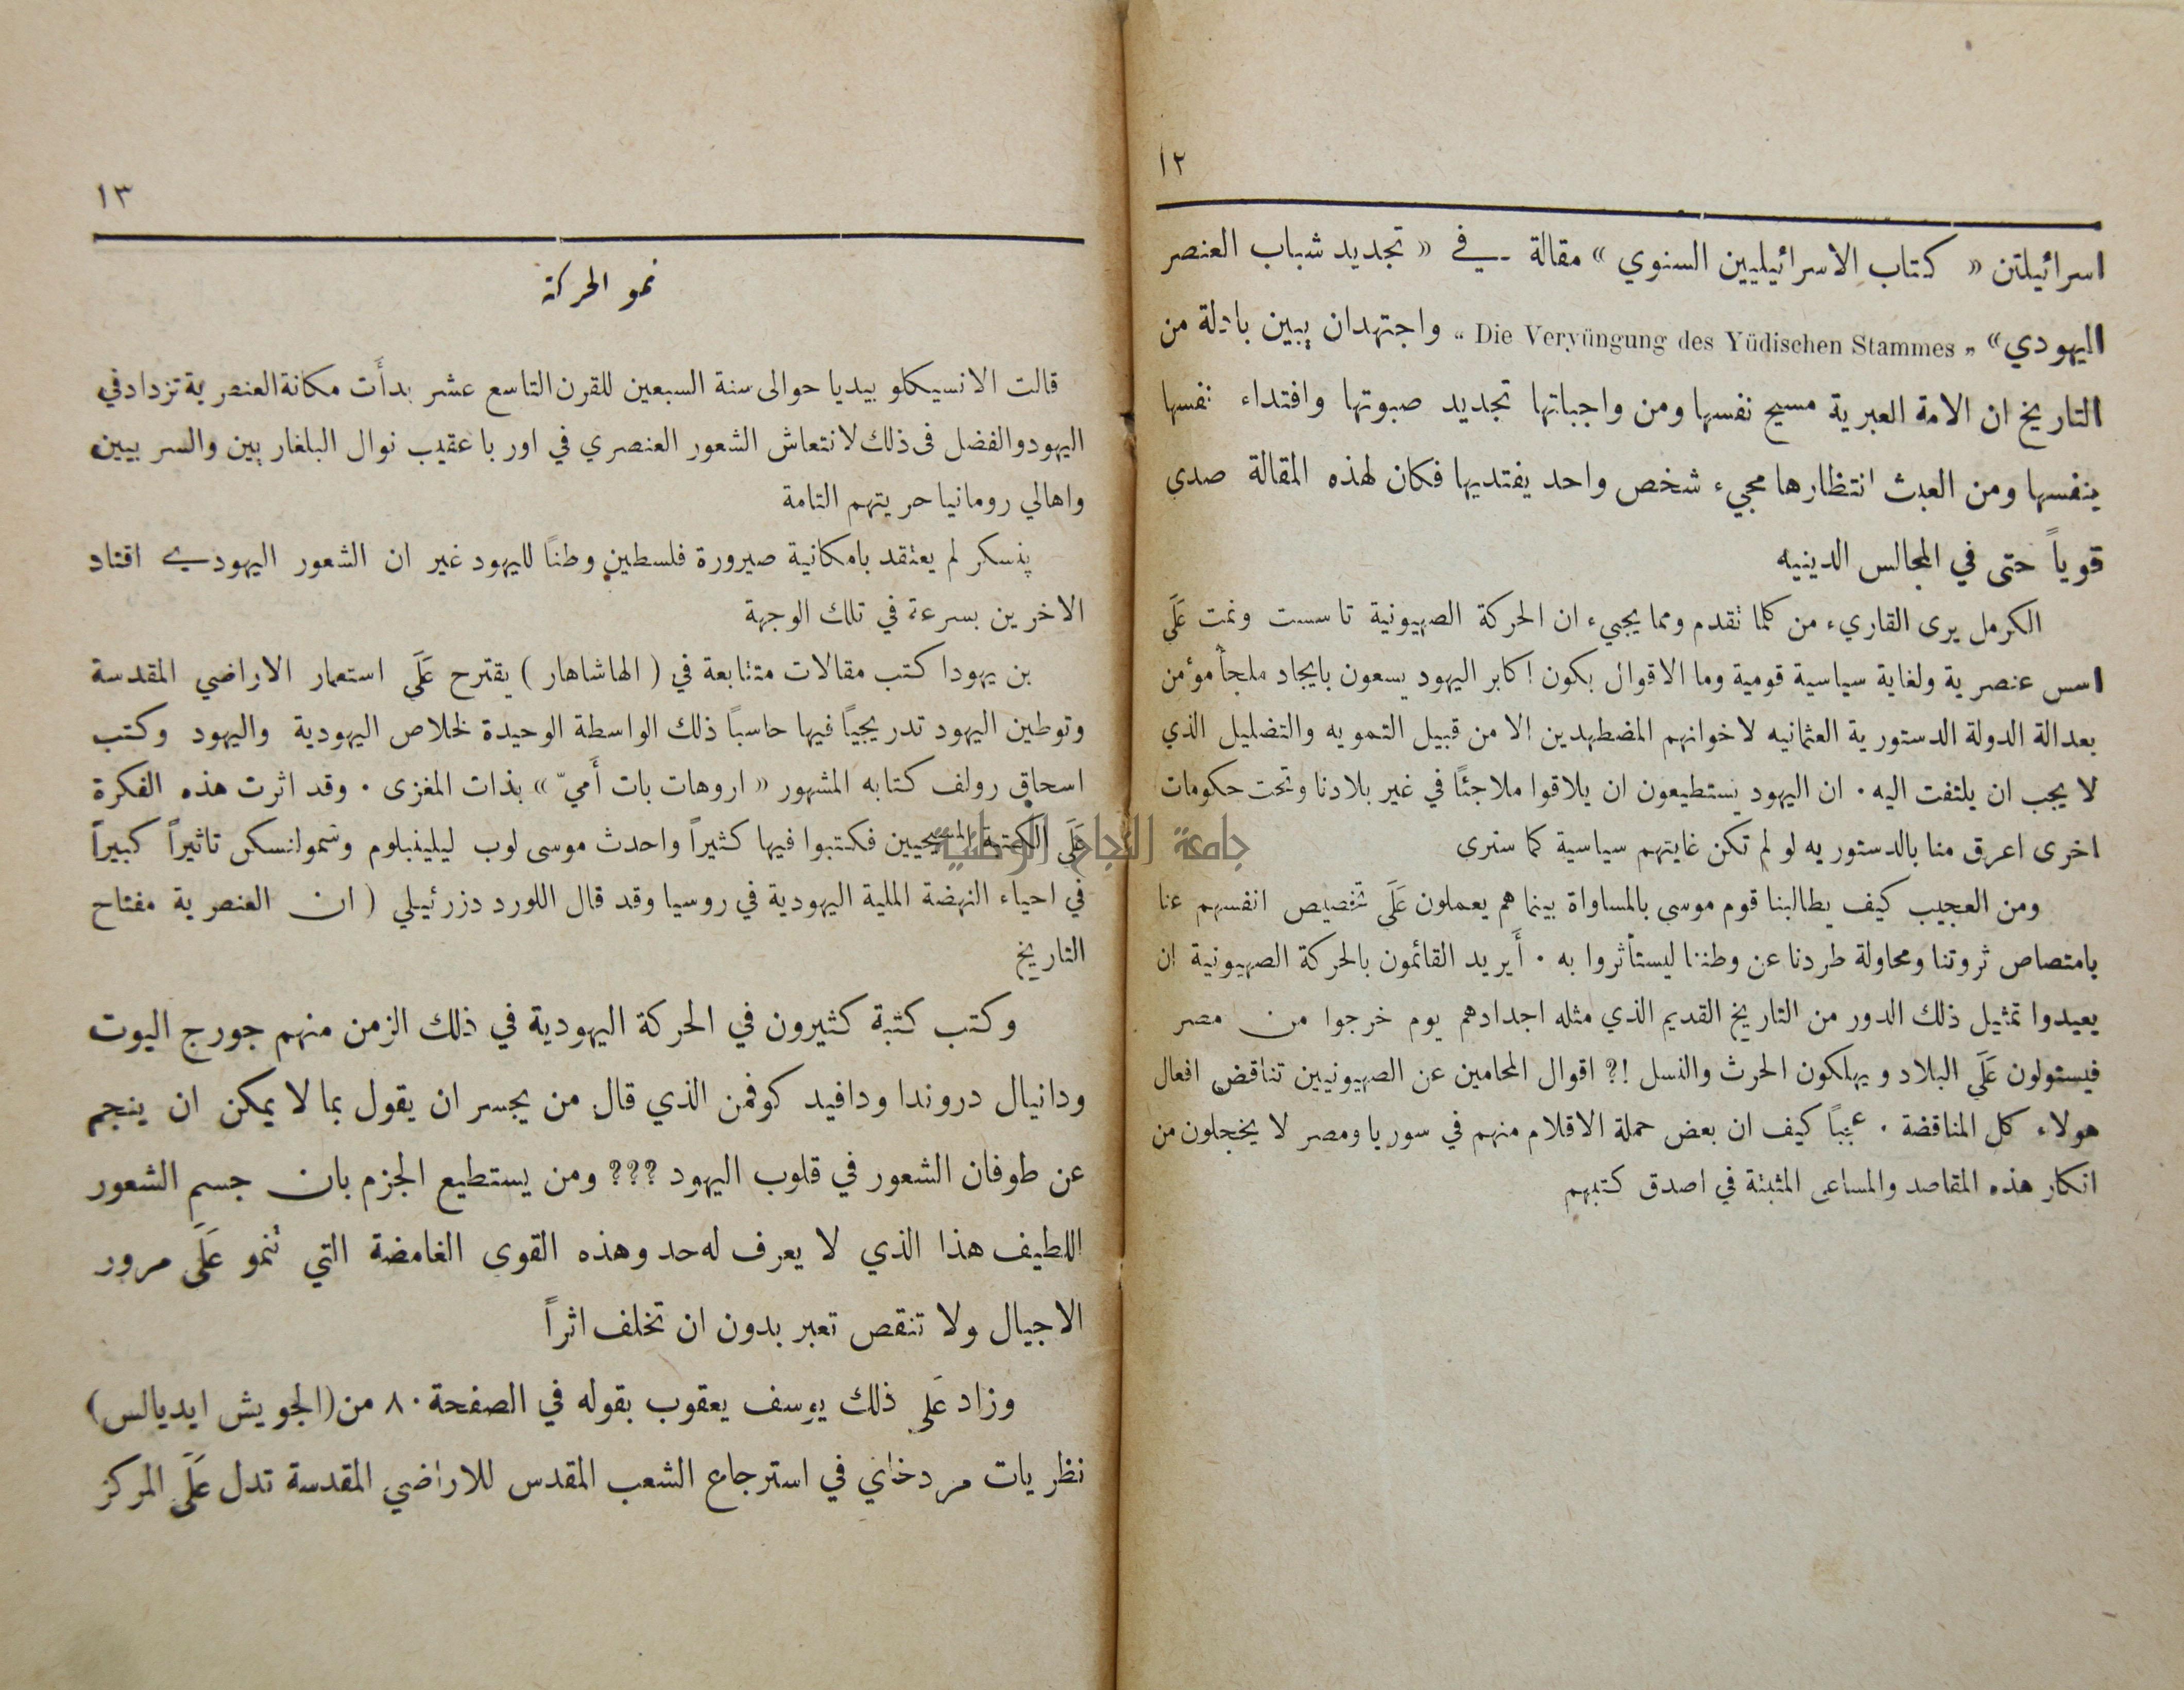 ١٢
اسرائيلتن « كتاب الاسرائيليين السنوي » مقالة في « تجديد شباب العنصر
اليهودي» „ Die Veryüngung des Yüdischen Stammes “ واجتهدان يبين بادلة من
التاريخ ان الامة العبرية مسيح نفسها ومن واجباتها تجديد صبوتها وافتداء نفسها
بنفسها ومن العبث انتظارها مجيء شخص واحد يفتديها فكان لهذه المقالة صدى
قوياً حتى في المجالس الدينيه
الكرمل يرى القاريء من كلما تقدم ومما يجيء ان الحركة الصهيونية تاسست ونمت عَلَى
اسس عنصرية ولغاية سياسية قومية وما الاقوال بكون اكابر اليهود يسعون بايجاد ملجأ مؤمن
بعدالة الدولة الدستورية العثمانيه لاخوانهم المضطهدين الا من قبيل التمويه والتضليل الذي
لا يجب ان يلتفت اليه ٠ ان اليهود يستطيعون ان يلاقوا ملاجئًا في غير بلادنا وتحت حكومات
اخرى اعرق منا بالدستوريه لو لم تكن غايتهم سياسية كما سنرى
ومن العجيب كيف يطالبنا قوم موسى بالمساواة بينما هم يعملون عَلَى تخصيص انفسهم عنا
بامتصاص ثروتنا ومحاولة طردنا عن وطننا ليستأثروا به ٠ أَيريد القائمون بالحركة الصهيونية ان
يعيدوا تمثيل ذلك الدور من التاريخ القديم الذي مثله اجدادهم يوم خرجوا من مصر
فيستولون عَلَى البلاد ويهلكون الحرث والنسل !؟ اقوال المحامين عن الصهيونيين تناقض افعال
هولاء كل المناقضة ٠ عجبًا كيف ان بعض حملة الاقلام منهم في سوريا ومصر لا يخجلون من
انكار هذه المقاصد والمساعى المثبتة في اصدق كتبهم
١٣
نمو الحركة
قالت الانسيكلو بيديا حوالى سنة السبعين للقرن التاسع عشر بدأَت مكانة العنصرية تزداد في
اليهود والفضل فى ذلك لانتعاش الشعور العنصري في اوربا عقيب نوال البلغاريين والسربيين
واهالي رومانيا حريتهم التامة
پنسكر لم يعتقد بامكانية صيرورة فلسطين وطنًا لليهود غير ان الشعور اليهودي اقتاد
الاخرين بسرعة في تلك الوجهة
بن يهودا كتب مقالات متتابعة في ( الهاشاهار ) يقترح عَلَى استعمار الاراضي المقدسة
وتوطين اليهود تدريجيًا فيها حاسبًا ذلك الواسطة الوحيدة لخلاص اليهودية واليهود وكتب
اسحاق رولف كتابه المشهور « اروهات بات أَميّ » بذات المغزى ٠ وقد اثرت هذه الفكرة
عَلَى الكتبة المسيحيين فكتبوا فيها كثيراً واحدث موسى لوب ليلينبلوم وشموانسكن تاثيراً كبيراً
في احياء النهضة الملية اليهودية في روسيا وقد قال اللورد دزرئيلي ( ان العنصرية مفتاح
التاريخ
وكتب كتبة كثيرون في الحركة اليهودية في ذلك الزمن منهم جورج اليوت
ودانيال دروندا ودافيد كوفمن الذي قال من يجسر ان يقول بما لا يمكن ان ينجم
عن طوفان الشعور في قلوب اليهود ؟؟؟ ومن يستطيع الجزم بان جسم الشعور
اللطيف هذا الذي لا يعرف له حد وهذه القوى الغامضة التي تنمو عَلَى مرور
الاجيال ولا تنقص تعبر بدون ان تخلف اثراً
وزاد عَلى ذلك يوسف يعقوب بقوله في الصفحة ٨٠ من (الجويش ايديالس)
نظريات مردخاي في استرجاع الشعب المقدس للاراضي المقدسة تدل عَلَى المركز
جامعة النجاح الوطنية